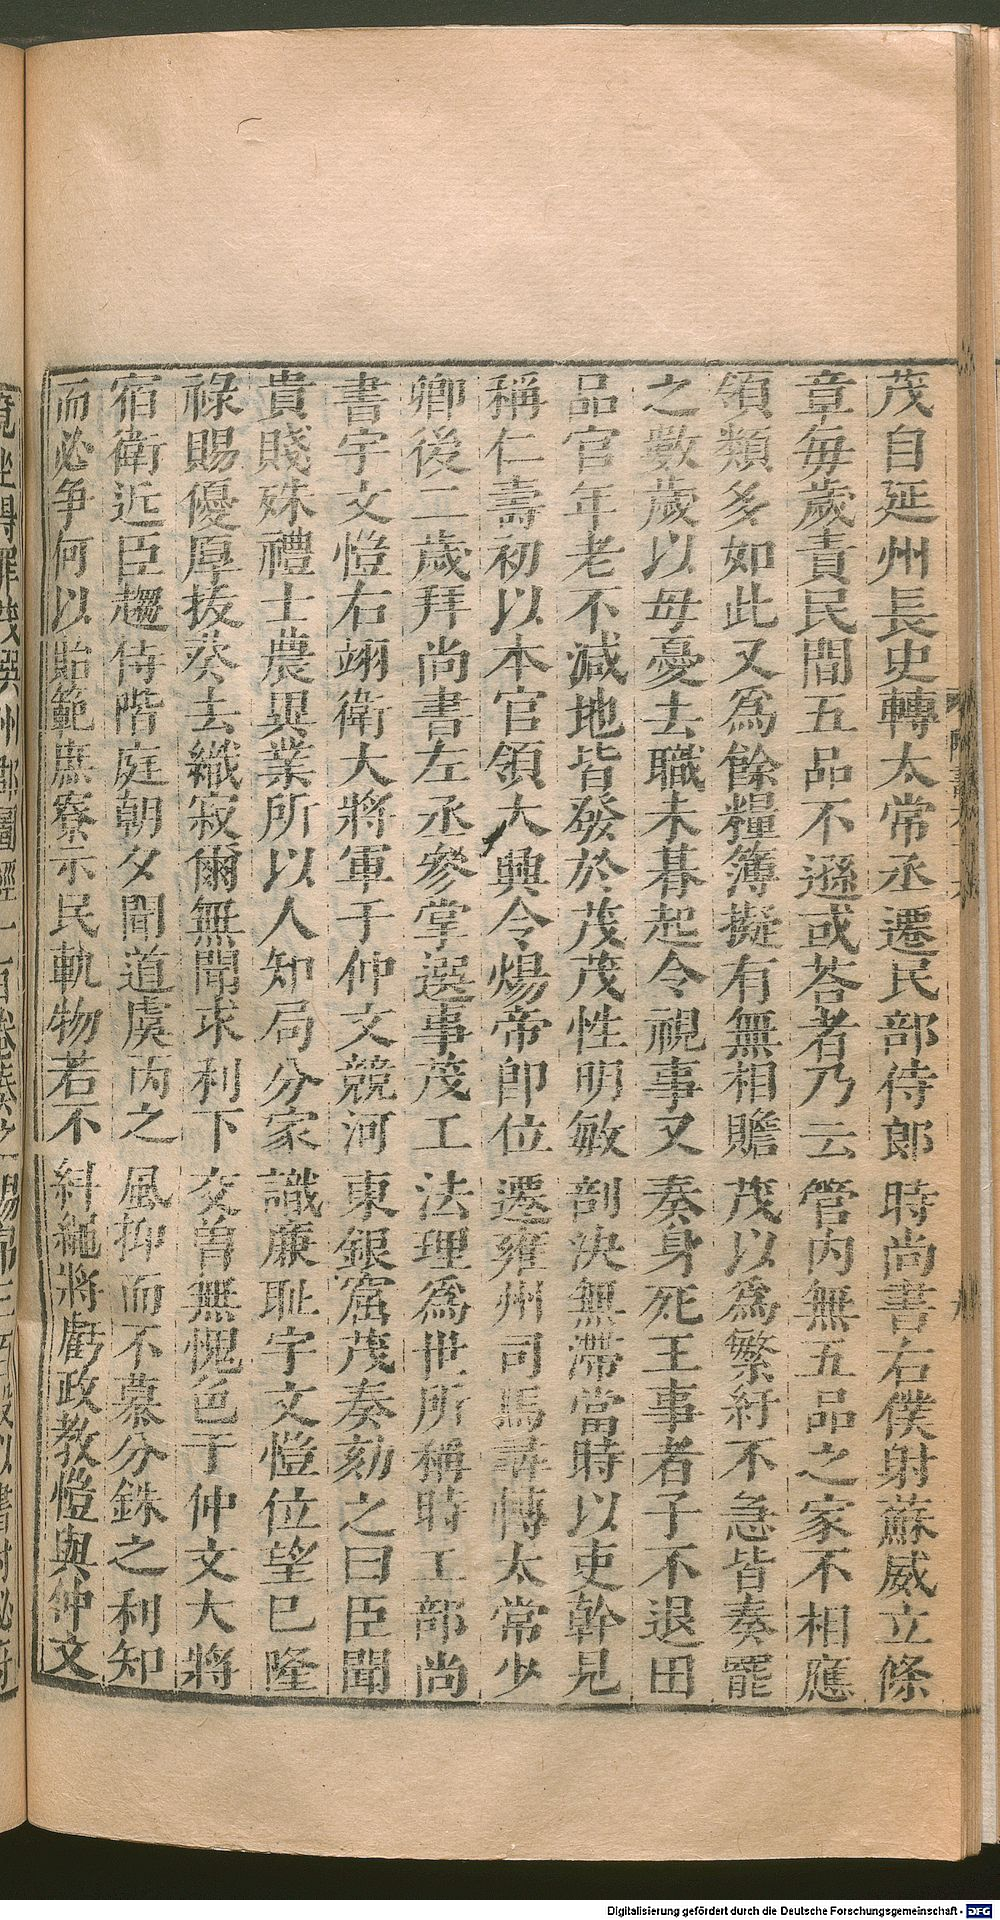 茂自延州長史轉太常丞遷民部侍郎時尚書右僕射蘇威立條
章每歲責民間五品不遜或荅者乃云管内無五品之家不相應
領類多如此又爲餘糧簿擬有無相贍茂以爲繁紆不急皆奏罷
之數歲以母憂去職未朞起令視事又奏身死王事者子不退田
品官年老不減地皆發於茂茂性明敏剖決無滯當時以吏幹見
稱仁壽初以本官領大興令煬帝即位遷雍州司馬尋轉太常少
卿後二歲拜尚書左丞參掌選事茂工法理爲世所稱時工部尚
書宇文愷右翊衛大將軍于仲文競河東銀窟茂奏劾之曰臣聞
貴賤殊禮士農異業所以人知局分家識廉耻宇文愷位望已隆
祿賜優厚拔葵去織寂爾無聞求利下交曾無愧色于仲文大將
宿衛近臣趨侍階庭朝夕聞道虞芮之風抑而不慕分銖之利知
而必争何以貽範庶寮示民軌物若不糾繩將虧政教愷與仲文
Digitalisierung gefördert durch die Deutsche Forschungsgemeinschaft - DFG